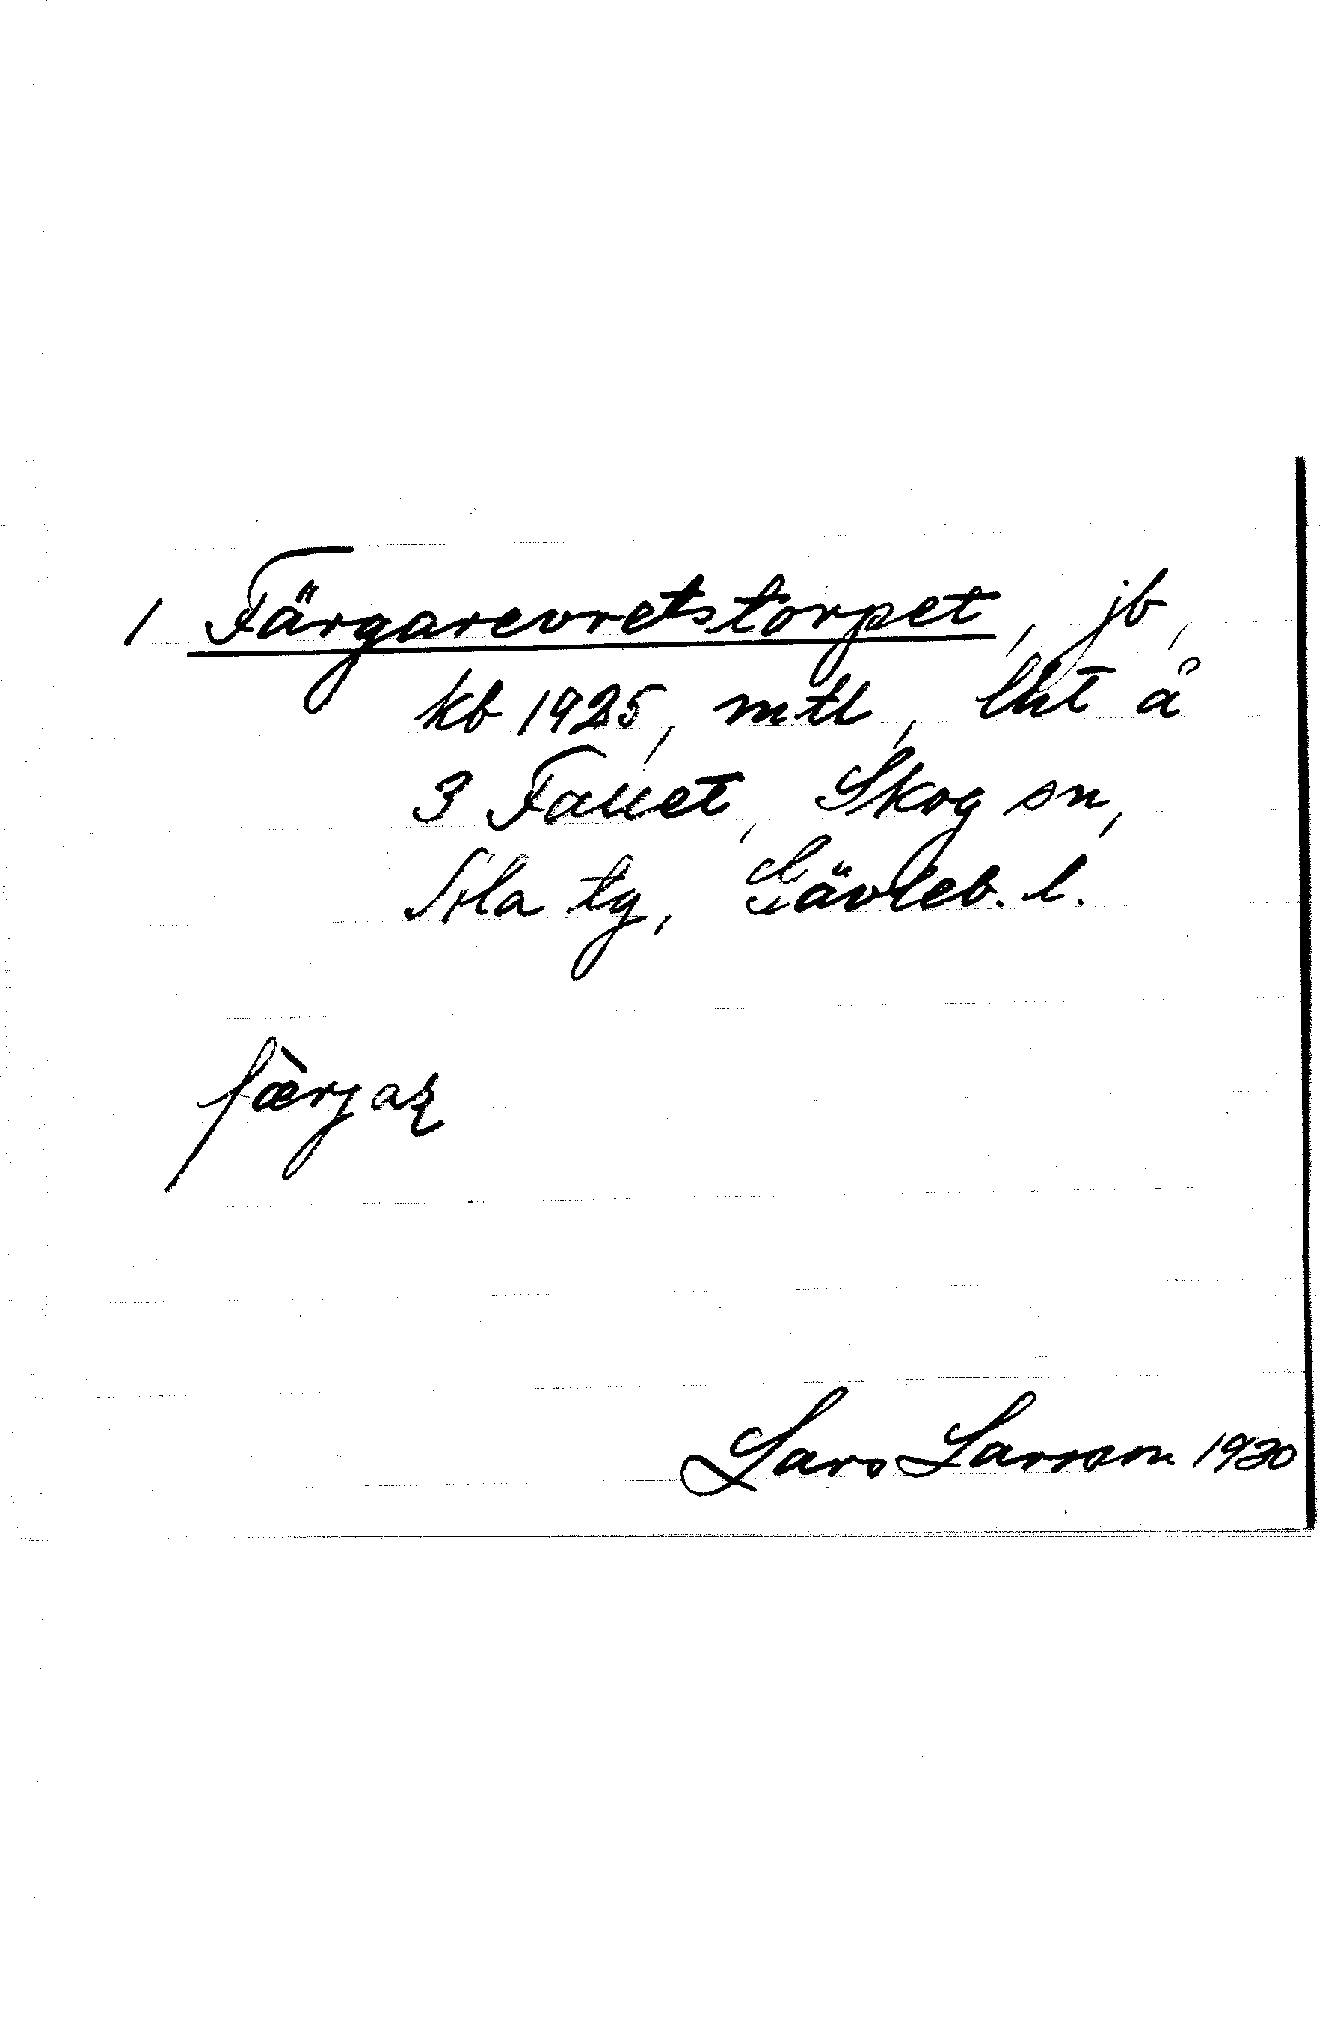 1 Färgarevretstorpet, jb,
kb 1925, mtl, lht å
3 Fallet, Skog sn,
Ala tg, Gävleb. l.
Lars Larsson 1930